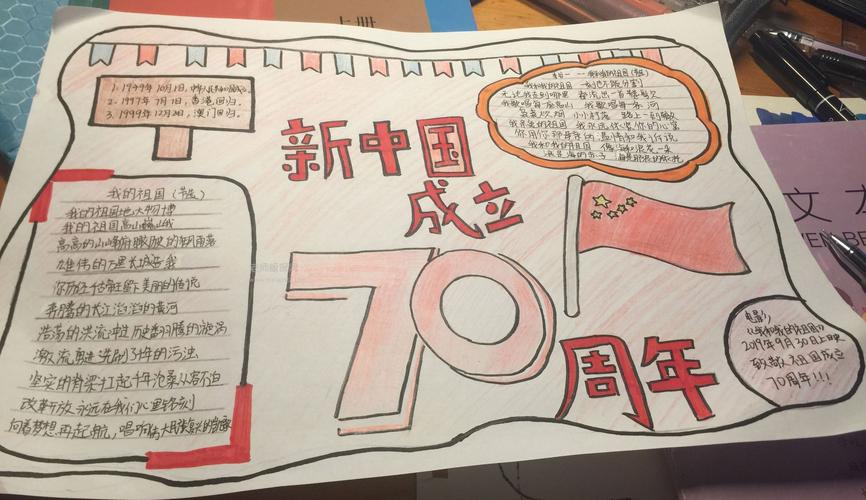 上册
1. 1949年10月1日,中华人民共和国成立。
2. 1997年7月1日,香港回归。
3. 1999年12月20日,澳门回归。
新中国
成立
70
周年
歌一一我和我的祖国(节选)
我和我的祖国 一刻也不能分割
无论我走到哪里 都流出一首赞歌
我歌唱每一座高山 我歌唱每一条河
袅袅炊烟 小小村落 路上一道辙
你用你那母亲的 和我诉说
我和我的祖国 像海和浪花一朵
我的祖国(节选)
我的祖国地大物博
我的祖国高山巍峨
高高的山峰俯瞰 的 雨落
雄伟的万里长城
奔腾的长江滔滔的黄河
浩荡的洪流冲过历史翻腾的漩涡
激流勇进洗刷了 年的污浊
坚实的脊梁扛起千年沧桑从容不迫
改革开放永远在我们心里铭刻
向着梦想再起航,唱响伟大民族复兴的
电影,
《我和我的祖国》
2019年9月30日上映
致敬祖国成立
70周年!!!
文